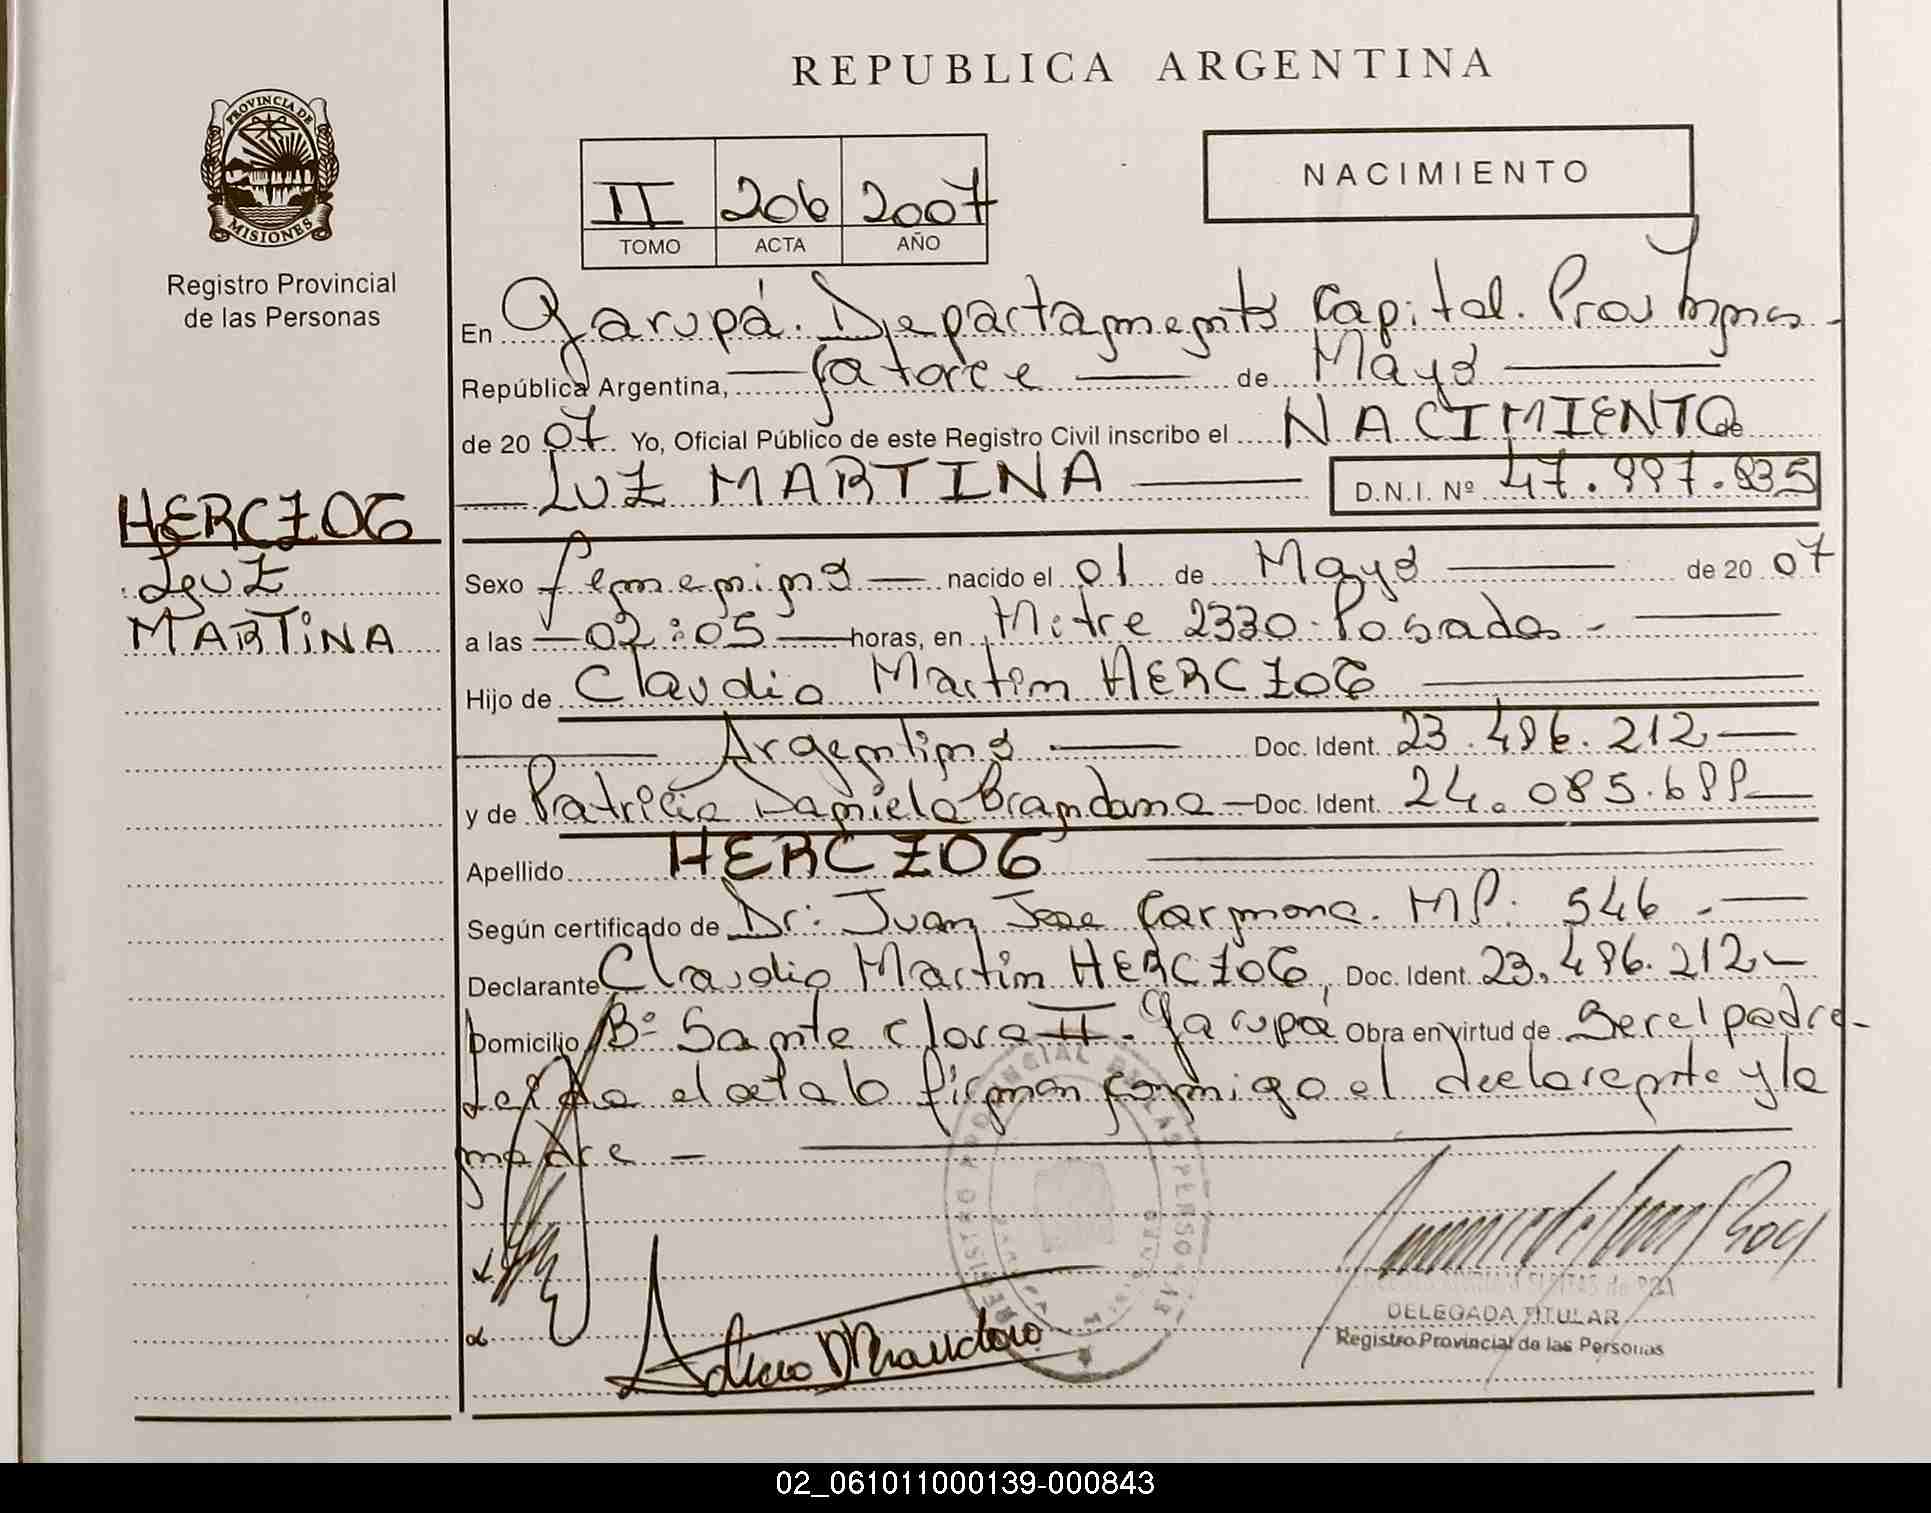 REPUBLICA ARGENTINA
PROVINCIA DE
MISIONES
Registro Provincial
de las Personas
NACIMIENTO
II 206 2007
TOMO ACTA AÑO
En Garupá. Departamento Capital. Prov Mnes.
República Argentina, catorce de Mayo
de 2007. Yo, Oficial Público de este Registro Civil inscribo el NACIMIENTO de
LUZ MARTINA D.N.I. Nº 47.997.835
HERCZOG
LUZ
MARTINA
Sexo femenino nacido el 01 de Mayo de 2007
a las 02:05 horas, en Mitre 2330. Posadas -
Hijo de Claudio Martin HERCZOG
Argentino Doc. Ident. 23.496.212
y de Patricia Daniela Brandana Doc. Ident. 24.085.699
Apellido HERCZOG
Según certificado de Dr: Juan Jose Carmona. MP: 546
Declarante Claudio Martin HERCZOG, Doc. Ident. 23.496.212
Domicilio Bº Santa Clara II. Garupá Obra en virtud de Ser el padre
Leida el acta lo firman conmigo el declarante y la
madre
REGISTRO PROVINCIAL DE LAS PERSONAS
DELEGADA TITULAR
Registro Provincial de las Personas
02_061011000139-000843